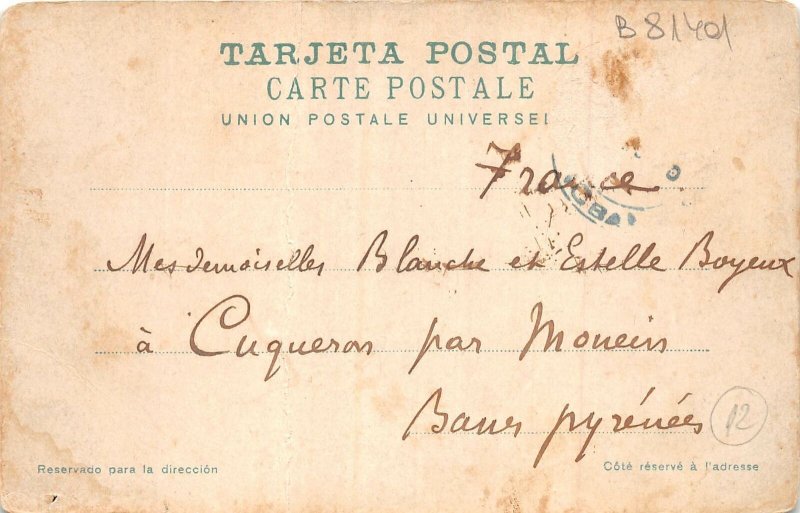 B 81401
TARJETA POSTAL
CARTE POSTALE
UNION POSTALE UNIVERSEL
France
Mesdemoiselles Blanche et Estelle Boyeux
à Cuqueron par Monein
Basses pyrénées
12
Reservado para la dirección
Côté réservé à l'adresse